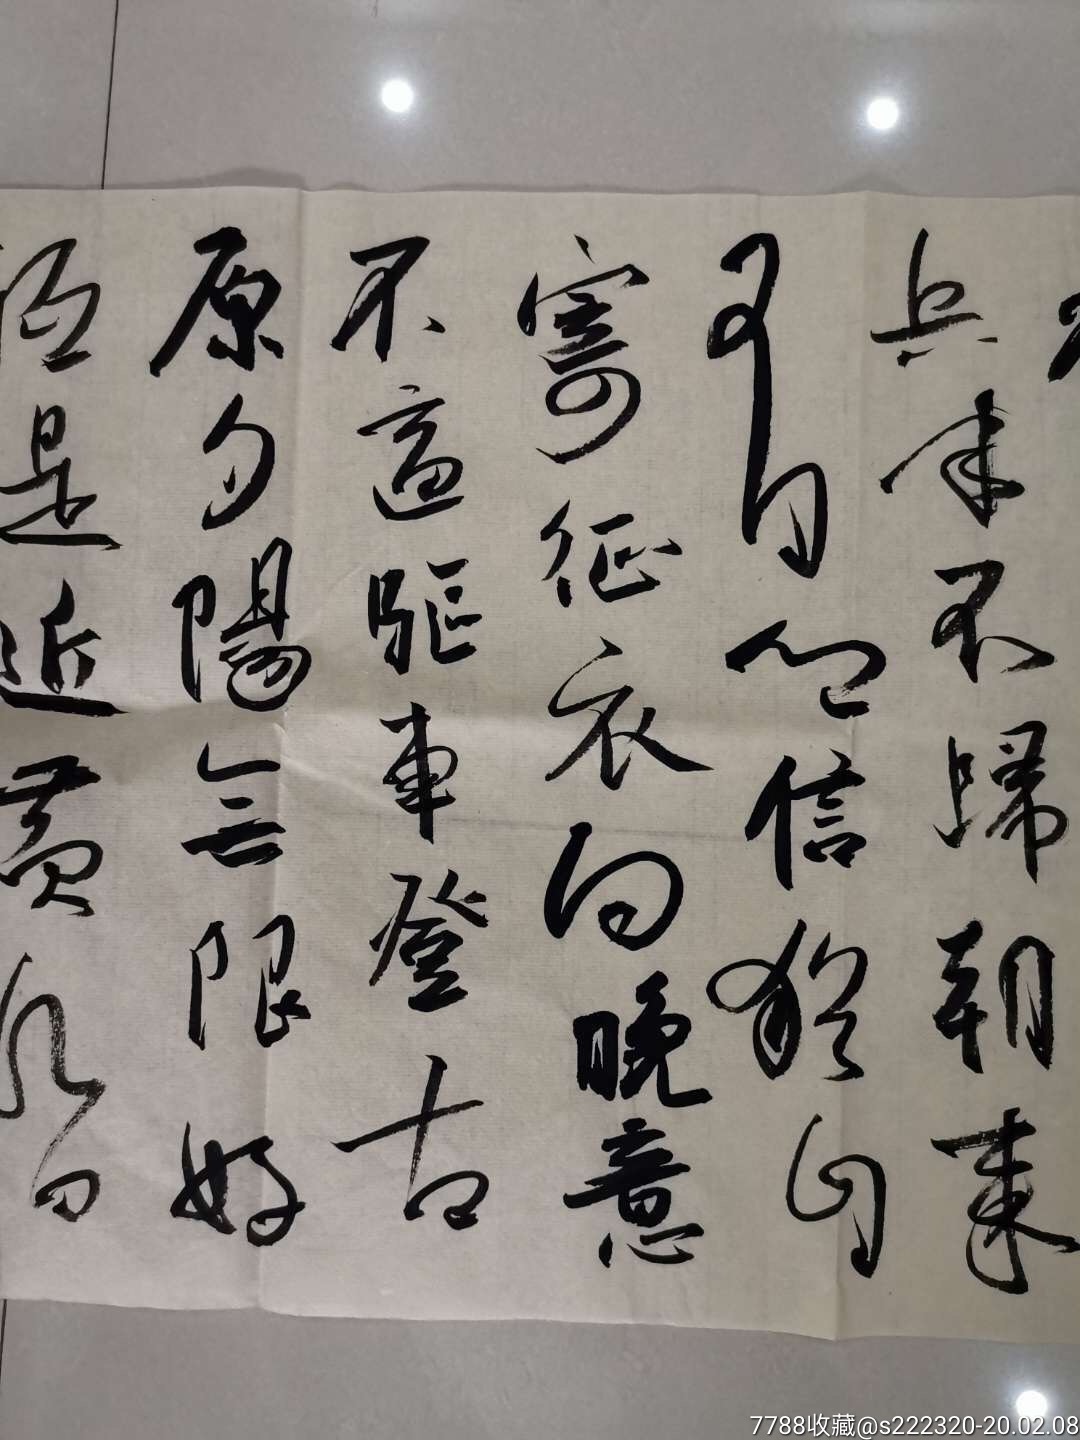 兵半不歸朝来
有鄉信猶自
寄征衣向晚意
不適驅車登古
原夕陽無限好
是近黄昏
7788收藏@s222320-20.02.08